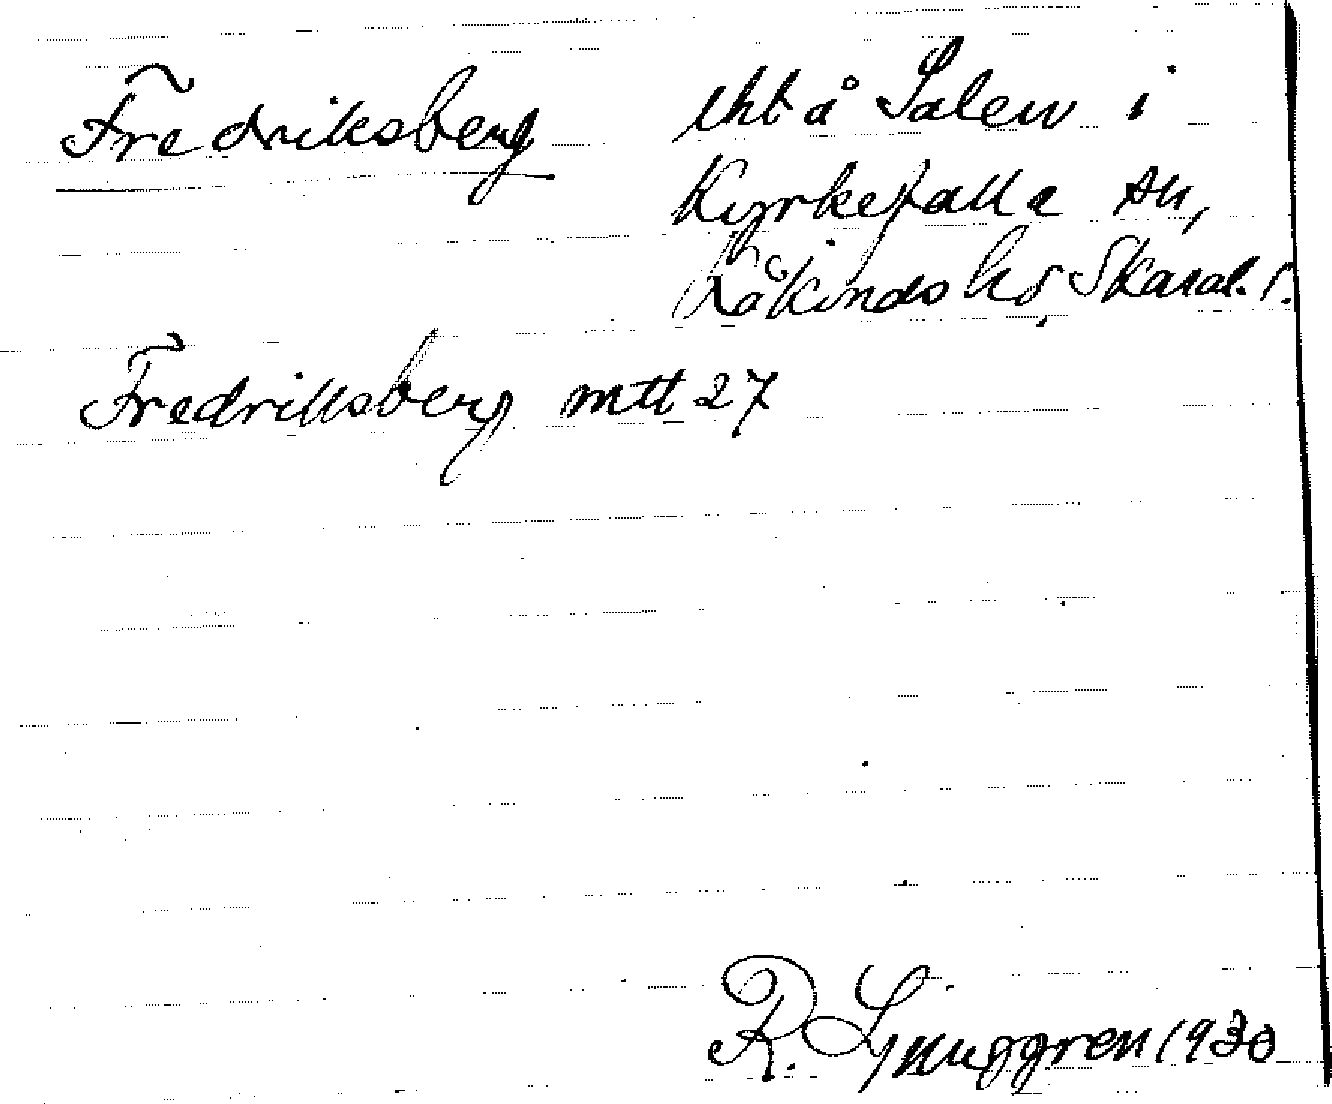 Fredriksberg
tht å Salen i
Kyrkefalla sn,
Kåkinds hd, Skarab. l.
Fredriksberg mtt 27
R. Ljunggren 1930